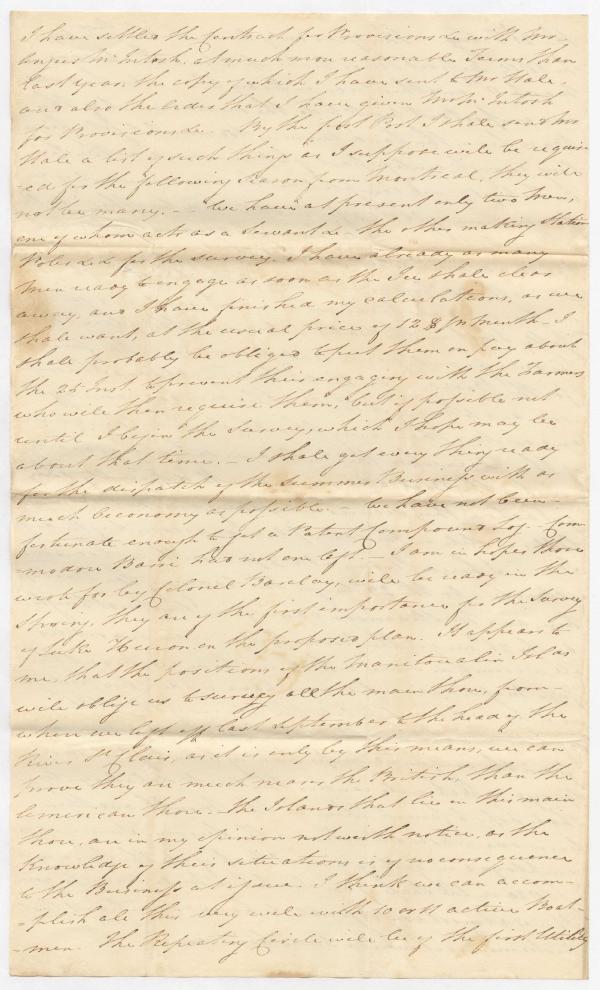 I have settled the Contract for Provisions &c with Mr
Angus McIntosh, at much more reasonable Terms than
last year, the copy of which I have sent to Mr Hale,
and also the order that I have given Mr McIntosh
for Provisions &c. By the first Post I shall send Mr
Hale a list of such things as I suppose will be requir-
-ed for the following Season from Montreal, they will
not be many. — We have at present only two Men,
one of whom acts as a Servant &c the other making Station
Poles &c &c for the survey. I have already as many
Men ready to engage as soon as the Ice shall clear
away, and I have finished my calculations, as we
shall want, at the usual price of 12 $ pr month. I
shall probably be obliged to put them on pay about
the 25 Inst. to prevent their engaging with the Farmers
who will then require them, but if possible not
until I begin the Survey, which I hope may be
about that time. — I shall get every thing ready
for the dispatch of the summer Business with as
much Economy as possible. — We have not been
fortunate enough to get a Patent Compound Log. — Com-
-modore Barrie had not one left — I am in hopes those
wrote for by Colonel Barclay, will be ready in the
Spring, they are of the first importance for the Survey
of Lake Huron on the proposed plan. It appears to
me, that the positions of the Manitoualin Islds
will oblige us to survey all the main shore, from
where we left off last September to the head of the
River St Clair, as it is only by this means, we can
prove they are much nearer the British, than the
American shore. — The Islands that lie on this main
shore, are in my opinion not worth notice, as the
Knowledge of their situations is of no consequence
to the Business at issue. I think we can accom-
-plish all this very well with 10 or 11 active Boat-
-men. The Repeating Circle will be of the first Utility